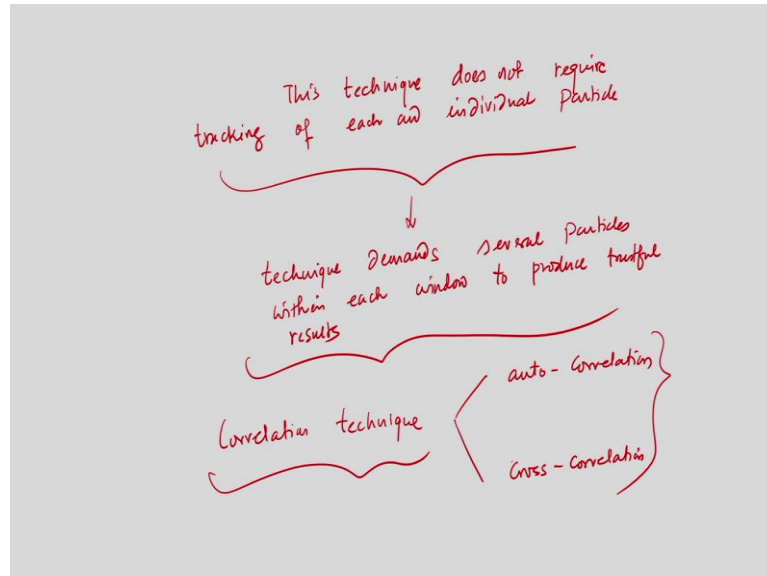 This technique does not require
tracking of each and individual Particle
technique demands several Particles
within each window to produce trustful
results
Correlation technique
auto-correlation
Cross-correlation